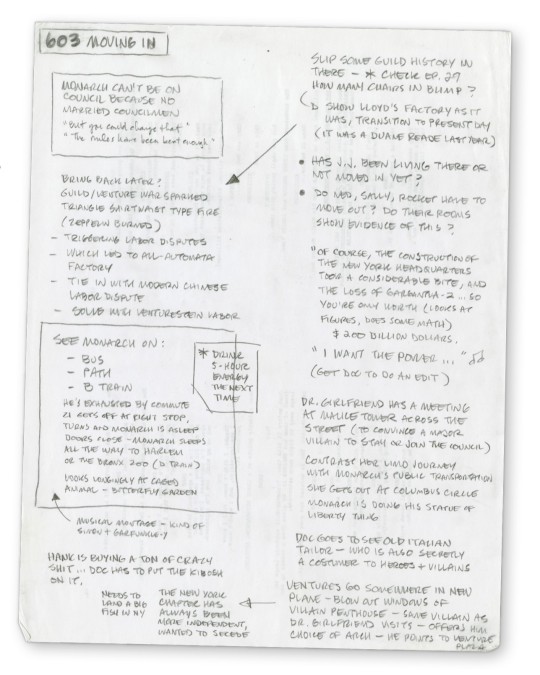 603 MOVING IN
MONARCH CAN'T BE ON
COUNCIL BECAUSE NO
MARRIED COUNCILMEN
"But you could change that"
"The rules have been bent enough"
BRING BACK LATER?
GUILD/VENTURE WAR SPARKED
TRIANGLE SHIRTWAIST TYPE FIRE
(ZEPPELIN BURNED)
- TRIGGERING LABOR DISPUTES
- WHICH LED TO ALL-AUTOMATA
FACTORY
- TIE IN WITH MODERN CHINESE
LABOR DISPUTE
- SOLVE WITH VENTURESTEIN LABOR
SEE MONARCH ON:
- BUS
- PATH
- B TRAIN
* DRINK
5-HOUR
ENERGY
THE NEXT
TIME
HE'S EXHAUSTED BY COMMUTE
21 GETS OFF AT RIGHT STOP,
TURNS AND MONARCH IS ASLEEP
DOORS CLOSE - MONARCH SLEEPS
ALL THE WAY TO HARLEM
OR THE BRONX ZOO (D TRAIN)
LOOKS LONGINGLY AT CAGED
ANIMAL - BUTTERFLY GARDEN
MUSICAL MONTAGE - KIND OF
SIMON + GARFUNKLE-Y
HANK IS BUYING A TON OF CRAZY
SHIT... DOC HAS TO PUT THE KIBOSH
ON IT.
NEEDS TO
LAND A BIG
FISH IN NY
THE NEW YORK
CHAPTER HAS
ALWAYS BEEN
MORE INDEPENDENT,
WANTED TO SECEDE
SLIP SOME GUILD HISTORY IN
THERE - * CHECK EP. 29
HOW MANY CHAIRS IN BLIMP?
SHOW LLOYD'S FACTORY AS IT
WAS, TRANSITION TO PRESENT DAY
(IT WAS A DUANE READE LAST YEAR)
• HAS J.J. BEEN LIVING THERE OR
NOT MOVED IN YET?
• DO NED, SALLY, ROCKET HAVE TO
MOVE OUT? DO THEIR ROOMS
SHOW EVIDENCE OF THIS?
"OF COURSE, THE CONSTRUCTION OF
THE NEW YORK HEADQUARTERS
TOOK A CONSIDERABLE BITE, AND
THE LOSS OF GARGANTUA-2 ... SO
YOU'RE ONLY WORTH (LOOKS AT
FIGURES, DOES SOME MATH)
$200 BILLION DOLLARS.
"I WANT THE POWER..." ♫
(GET DOC TO DO AN EDIT)
DR. GIRLFRIEND HAS A MEETING
AT MALICE TOWER ACROSS THE
STREET (TO CONVINCE A MAJOR
VILLAIN TO STAY OR JOIN THE COUNCIL)
CONTRAST HER LIMO JOURNEY
WITH MONARCH'S PUBLIC TRANSPORTATION
SHE GETS OUT AT COLUMBUS CIRCLE
MONARCH IS DOING HIS STATUE OF
LIBERTY THING
DOC GOES TO SEE OLD ITALIAN
TAILOR - WHO IS ALSO SECRETLY
A COSTUMER TO HEROES + VILLAINS
VENTURES GO SOMEWHERE IN NEW
PLANE - BLOW OUT WINDOWS OF
VILLAIN PENTHOUSE - SAME VILLAIN AS
DR. GIRLFRIEND VISITS - OFFERS HIM
CHOICE OF ARCH - HE POINTS TO VENTURE